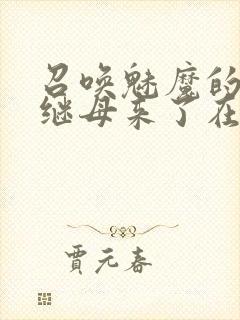 召唤魅魔的
继母来了在
贾元春